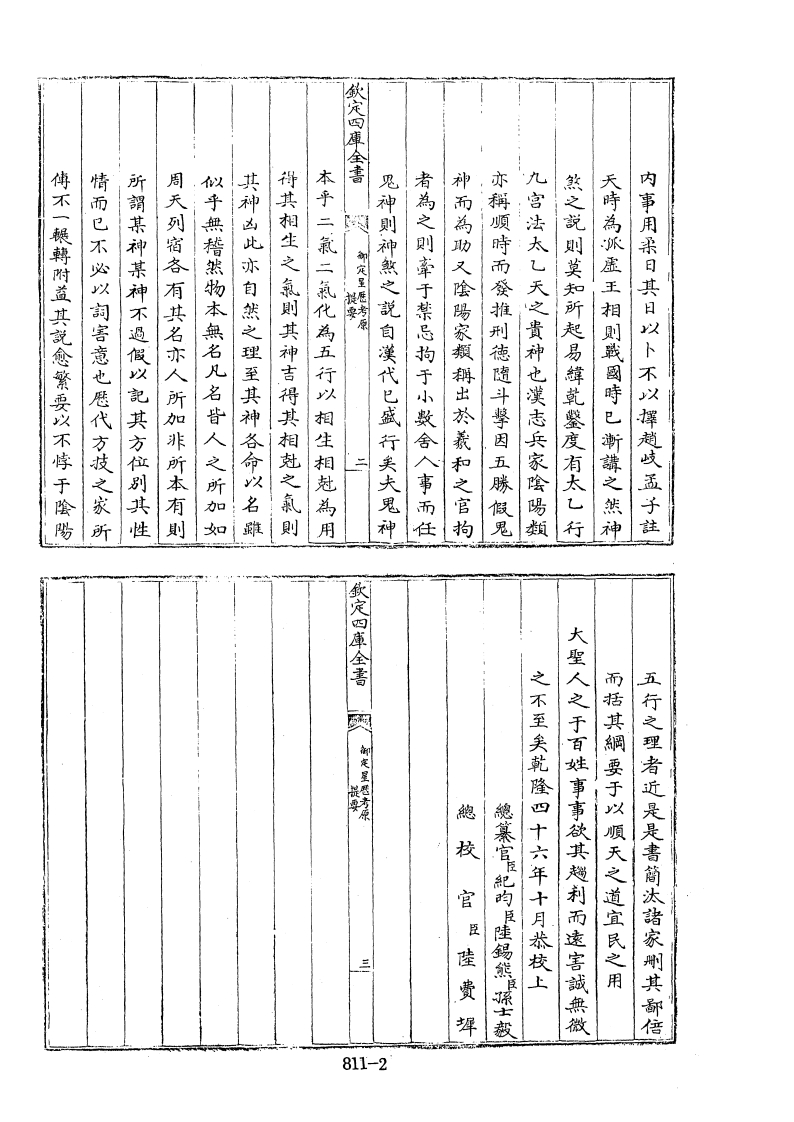 內事用柔日其日以卜不以擇趙岐孟子註
天時為孤虛王相則戰國時已漸講之然神
煞之説則莫知所起易緯乾鑿度有太乙行
九宫法太乙天之貴神也漢志兵家陰陽類
亦稱順時而發推刑徳隨斗擊因五勝假鬼
神而為助又陰陽家類稱出於羲和之官拘
者為之則牽于禁忌拘于小數舍人事而任
鬼神則神煞之説自漢代已盛行矣夫鬼神
欽定四庫全書
御定星厯考原
提要
二
本乎二氣二氣化為五行以相生相尅為用
得其相生之氣則其神吉得其相尅之氣則
其神凶此亦自然之理至其神各命以名雖
似乎無稽然物本無名凡名皆人之所加如
周天列宿各有其名亦人所加非所本有則
所謂某神某神不過假以記其方位别其性
情而已不必以詞害意也厯代方技之家所
傳不一輾轉附益其説愈繁要以不悖于陰陽
五行之理者近是是書簡汰諸家刪其鄙倍
而括其綱要于以順天之道宜民之用
大聖人之于百姓事事欲其趨利而逺害誠無微
之不至矣乾隆四十六年十月恭校上
總纂官臣紀昀臣陸錫熊臣孫士毅
總校官臣陸費墀
欽定四庫全書
御定星厯考原
提要
三
811-2